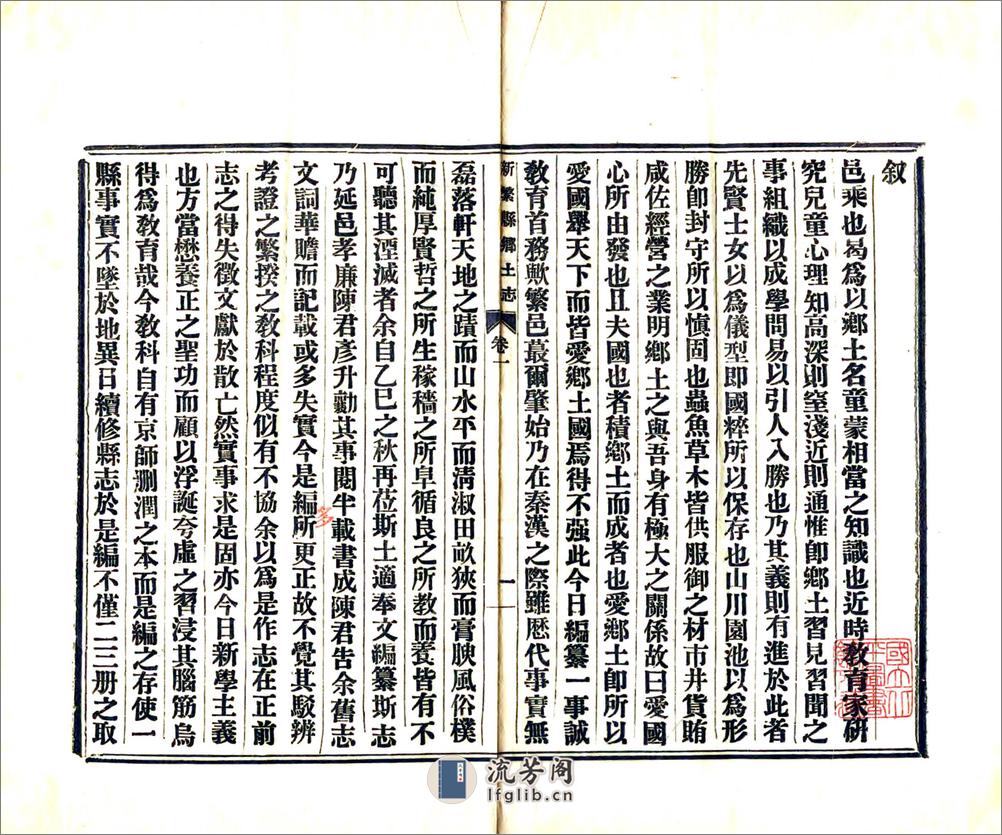 叙
邑乘也曷爲以鄉土名童蒙相當之知識也近時教育家硏
究兒童心理知高深則窒淺近則通惟卽鄉土習見習聞之
事組織以成學問易以引人入勝也乃其義則有進於此者
先賢士女以爲儀型即國粹所以保存也山川園池以爲形
勝卽封守所以愼固也蟲魚草木皆供服御之材市井貨賄
咸佐經營之業明鄉土之與吾身有極大之關係故曰愛國
心所由發也且夫國也者積鄉土而成者也愛鄉土卽所以
愛國舉天下而皆愛鄉土國焉得不强此今日編纂一事誠
教育首務歟繁邑蕞爾肇始乃在秦漢之際雖歷代事實無
新繁縣鄉土志
卷一
一
磊落軒天地之蹟而山水平而淸淑田畝狹而膏腴風俗樸
而純厚賢哲之所生稼穡之所阜循良之所教而養皆有不
可聽其湮滅者余自乙巳之秋再莅斯土適奉文編纂斯志
乃延邑孝廉陳君彥升勷其事閱半載書成陳君告余舊志
文詞華贍而記載或多失實今是編所更正故不覺其駁辨
多
考證之繁揆之教科程度似有不協余以爲是作志在正前
志之得失徵文獻於散亡然實事求是固亦今日新學主義
也方當懋養正之聖功而顧以浮誕夸虛之習浸其腦筋烏
得爲教育哉今教科自有京師刪潤之本而是編之存使一
縣事實不墜於地異日續修縣志於是編不僅二三册之取
流芳阁
lfglib.cn